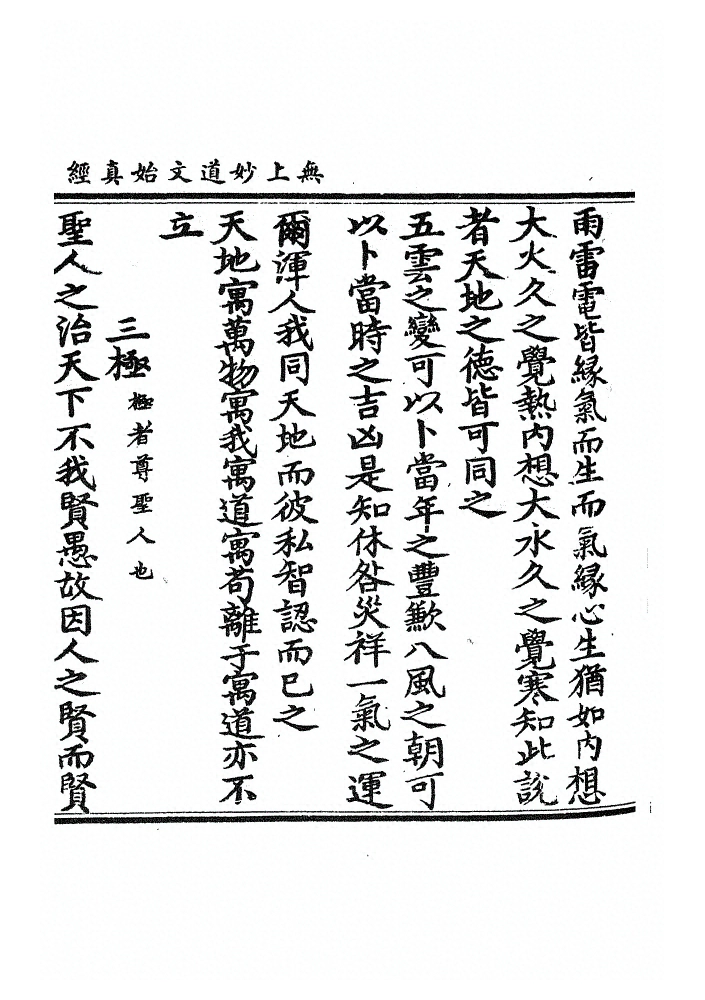 無上妙道文始真經
雨雷電皆緣氣而生而氣緣心生猶如內想
大火久之覺熱內想大水久之覺寒知此說
者天地之德皆可同之
五雲之變可以卜當年之豐歉八風之朝可
以卜當時之吉凶是知休咎災祥一氣之運
爾渾人我同天地而彼私智認而已之
天地寓萬物寓我寓道寓苟離于寓道亦不
立
三極極者尊聖人也
聖人之治天下不我賢愚故因人之賢而賢